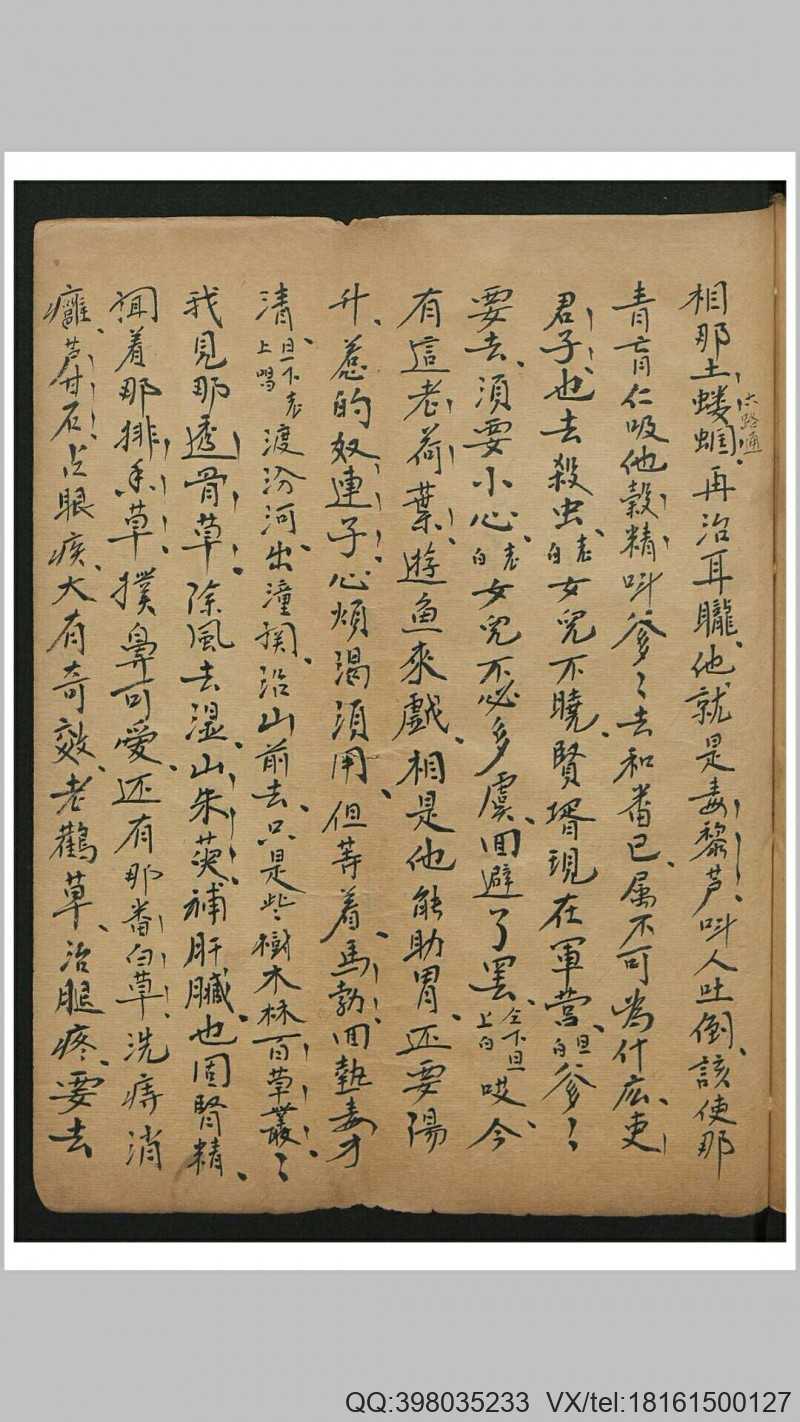 相那土蝼蝈、再治耳朧、他就是毒黎芦、叫人吐倒、該使那
六路通
青盲仁吸他穀精、叫爹〻去和番已、属不可為什広、吏
君子也去殺虫、老白女兒不曉、賢壻現在軍营、旦白爹〻
要去、須要小心、老白女兒不必多虞、回避了罢、仝下旦上白哎今
有這老荷葉、遊魚來戲、相是他能助胃、还要陽
升、惹的奴連子心煩渴須用、但等着馬勃回熱毒才
清、旦下老上唱渡汾河出潼関、沿山前去、只是些樹木林百草叢〻
我見那透骨草、除風去湿、山朱萸補肝臟、也固腎精、
闻着那排香草、撲鼻可愛、还有那番白草、洗痔消
癰、芦甘石、占眼疾、大有奇效、老鸛草、治腿疼、要去
QQ:398035233 VX/tel:18161500127